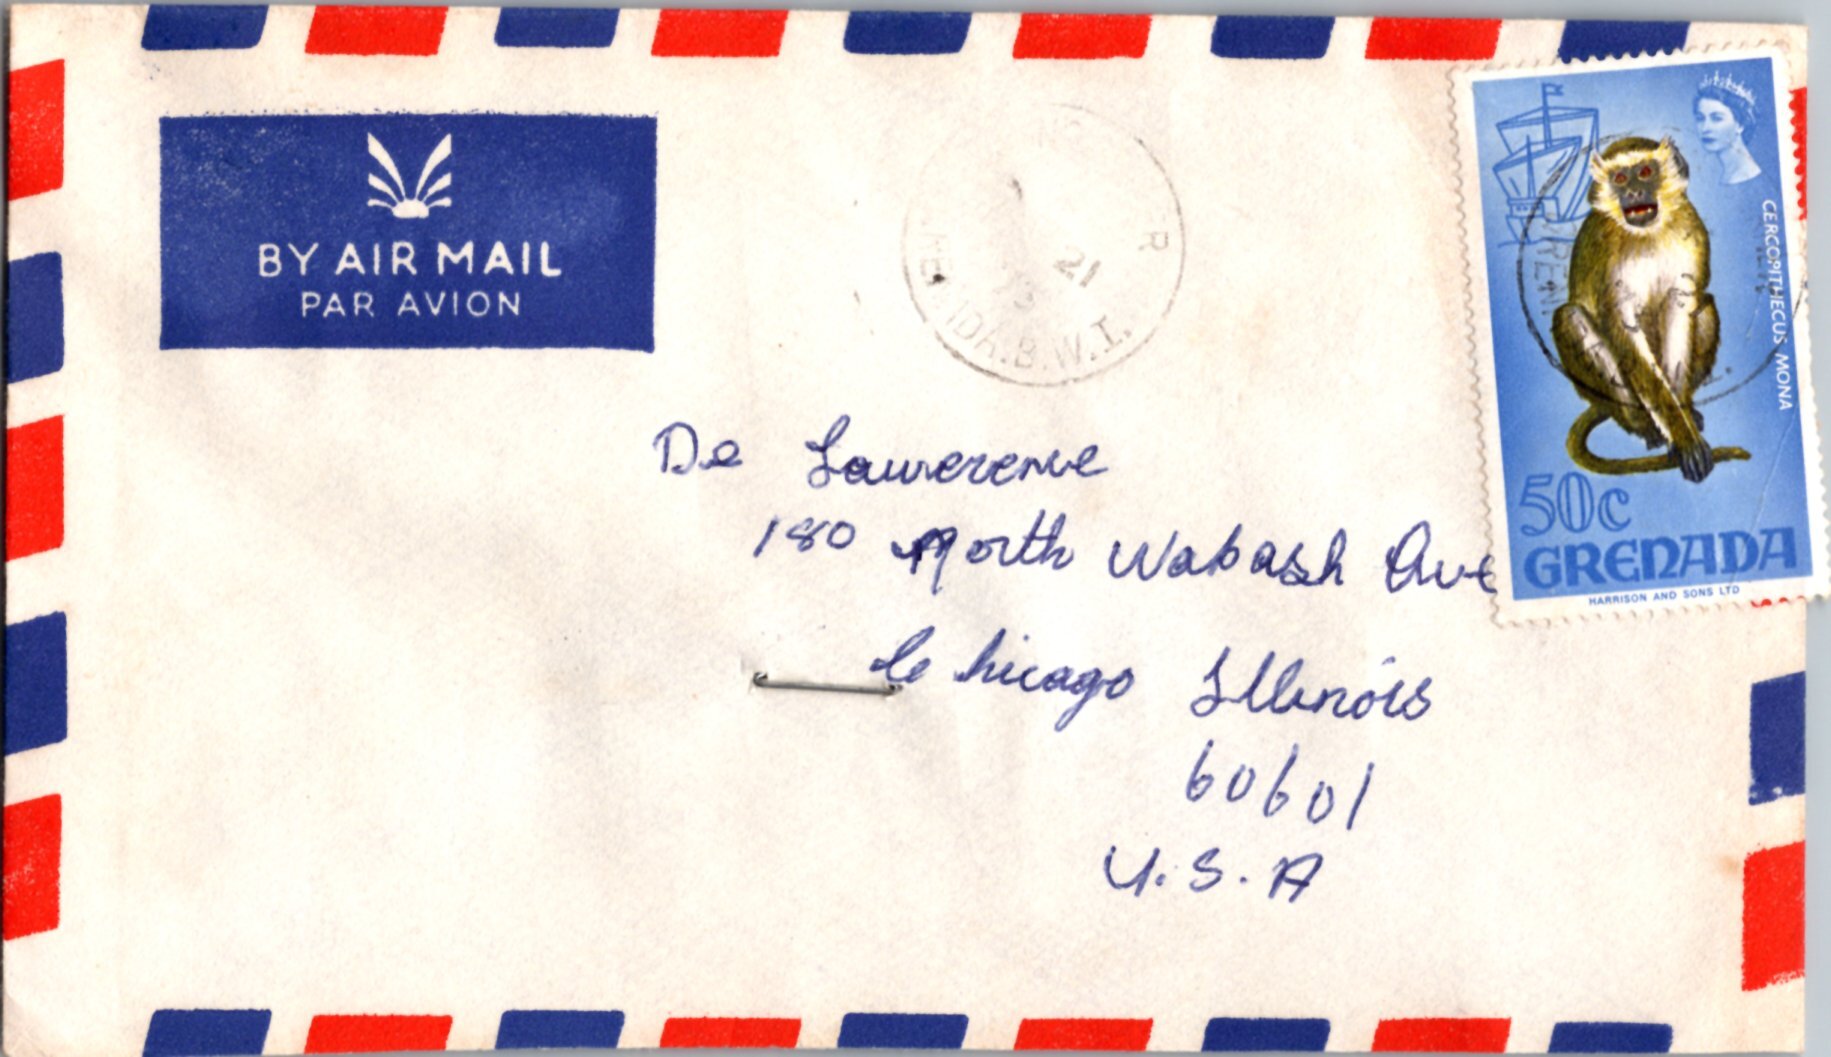 BY AIR MAIL
PAR AVION
21
B.W.I.
CERCOPITHECUS MONA
50c
GRENADA
HARRISON AND SONS LTD
De Lawrerence
180 North Wabash Ave
Chicago Illinois
60601
U.S.A